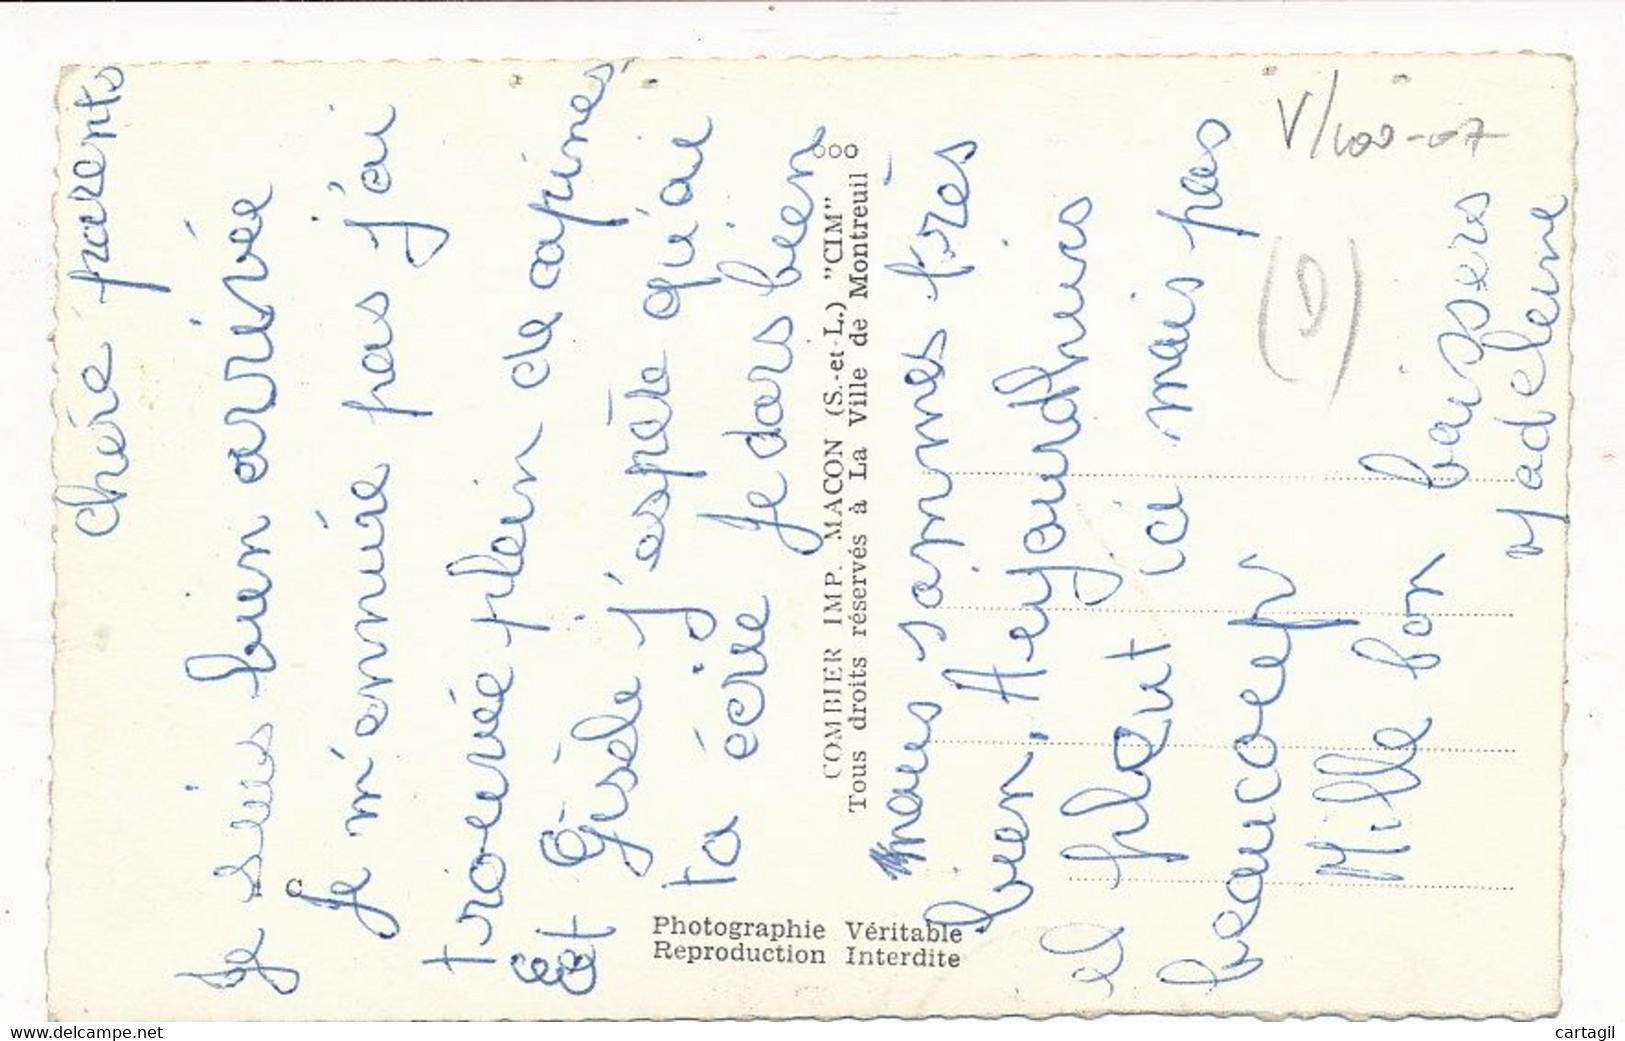 chère parents
Je suis bien arrivée
Je m'ennuie pas j'ai
trouvée plein de copines
Et Gisèle j'espère qu'ai
ta écrie Je dors bien
nous sommes très
bien, Aujourdhuis
el pleut ici mais pas
beaucoup
Mille bon baissers
Madeleine
COMBIER IMP. MACON (S.-et-L.) "CIM"
Tous droits réservés à La Ville de Montreuil
Photographie Véritable
Reproduction Interdite
C
(D)
cartagil
www.delcampe.net